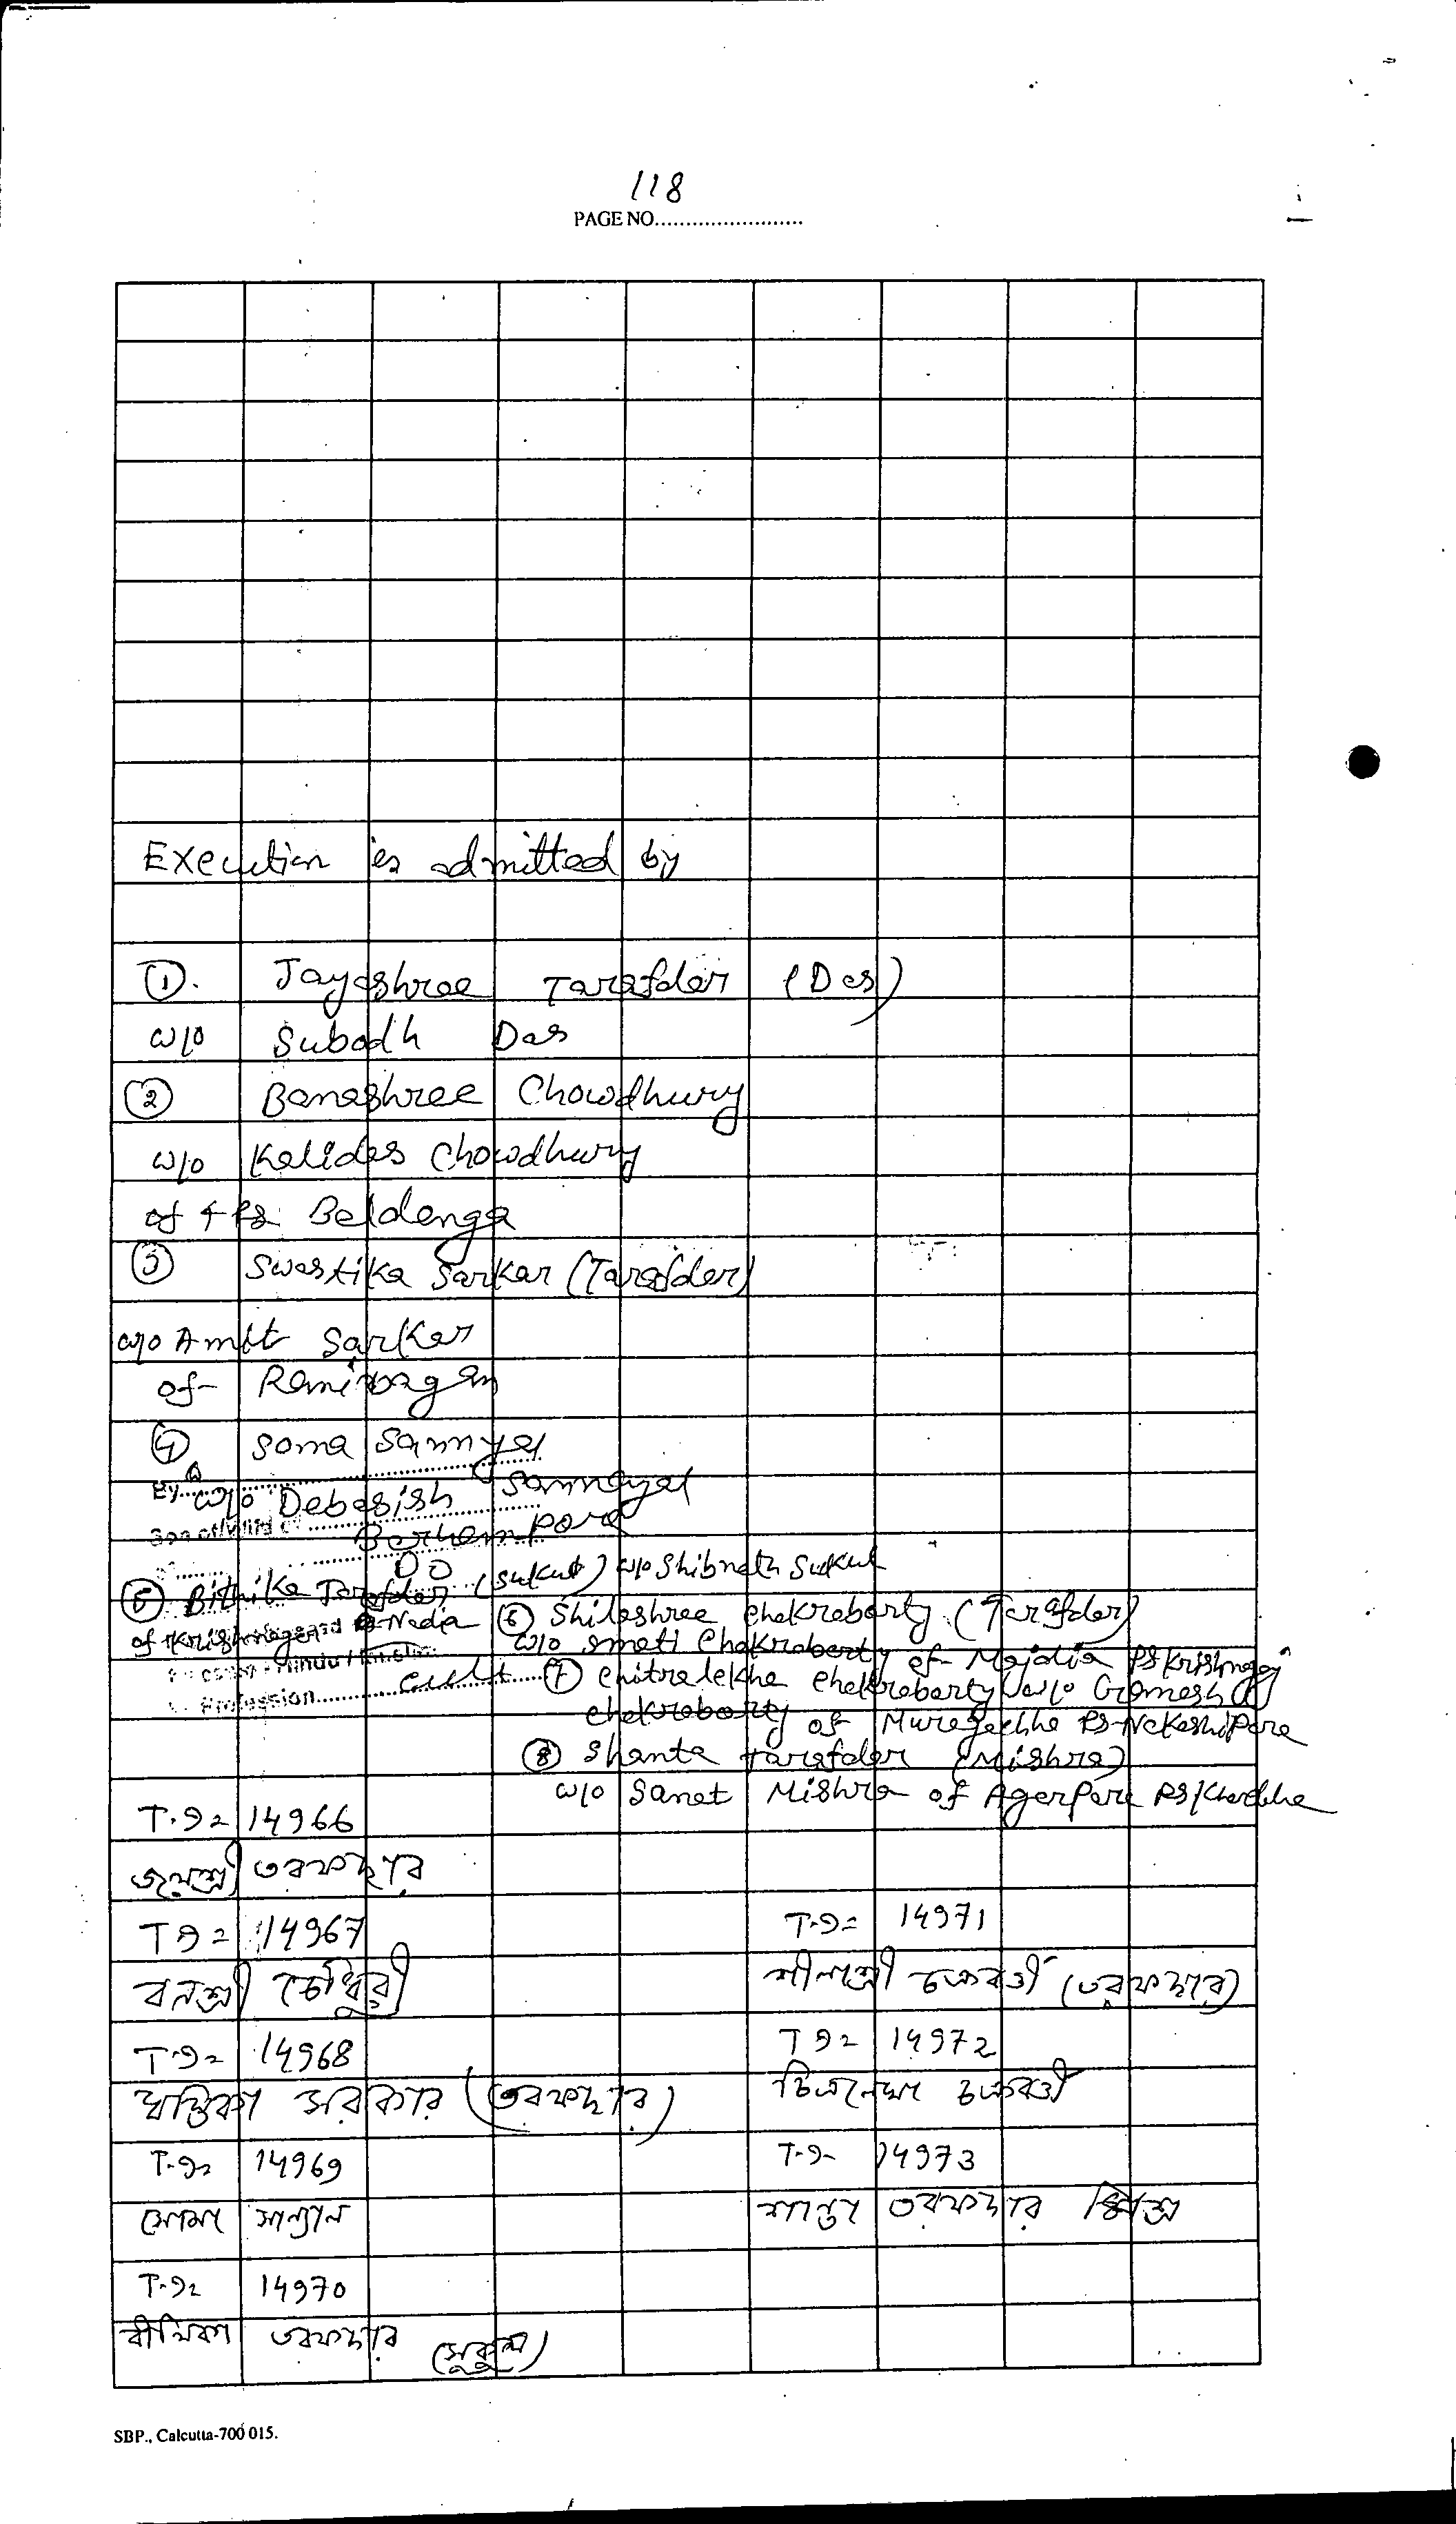 118
PAGE NO........................
Execution is admitted by
①. Jayashree Tarafder (Das)
w/o Subodh Das
② Banashree Chowdhury
w/o Kalidas Chowdhury
of + Ps. Beldanga
③ Swastika Sarkar (Tarafder)
w/o Amit Sarkar
of - Ranibagan
④ Soma Sannyal
By w/o Debasish Sannyal
Berhampore
Do
⑤ Bithika Tarafder (Sukul) w/o Shibnath Sukul
of Krishnagar Nadia
⑥ Shilashree Chakraborty (Tarafder)
w/o Chakraborty of Majdia PS Krishnaganj
Profession.......... cult
⑦ Chitralekha Chakraborty w/o
Chakraborty of Muragachha PS-Nakashipara
⑧ Shanta Tarafder (Mishra)
w/o Sanat Mishra of Agarpara PS Khardha
T.9= 14966
জয়শ্রী তরফদার
T9= 14967
বনশ্রী চৌধুরী
T.9= 14968
স্বস্তিকা সরকার (তরফদার)
T.9= 14969
সোমা সান্যাল
T.9= 14970
বীথিকা তরফদার (সুকুল)
T.9= 14971
শীলাশ্রী চক্রবর্তী (তরফদার)
T9= 14972
চিত্রলেখা চক্রবর্তী
T.9- 14973
শান্তা তরফদার মিশ্র
SBP., Calcutta-700 015.